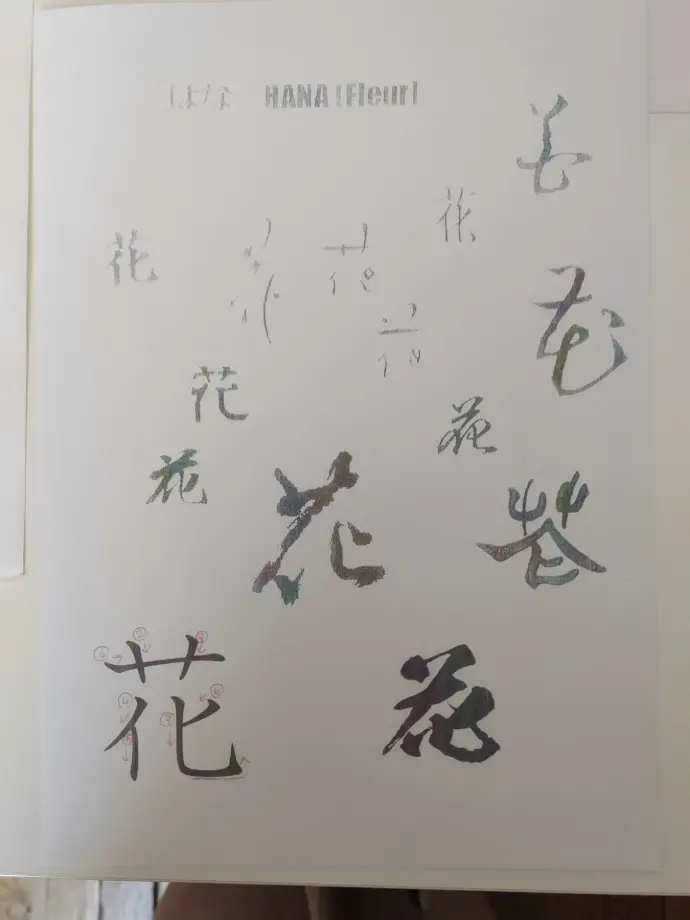 はな HANA (Fleur)
花
花
花
花
花
花
花
花
花
花 花